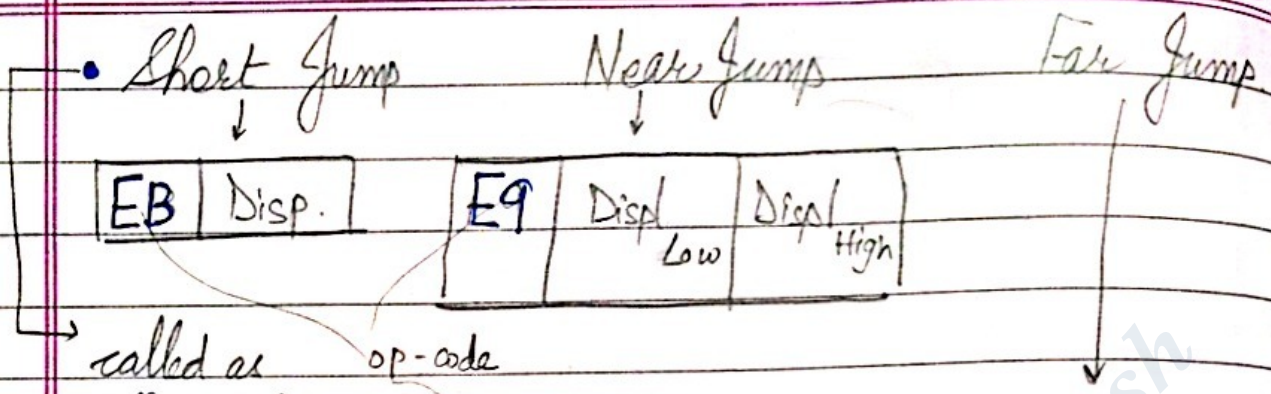 • Short Jump Near Jump Far Jump
EB Disp. E9 Displ Low Displ High
called as op-code
sh